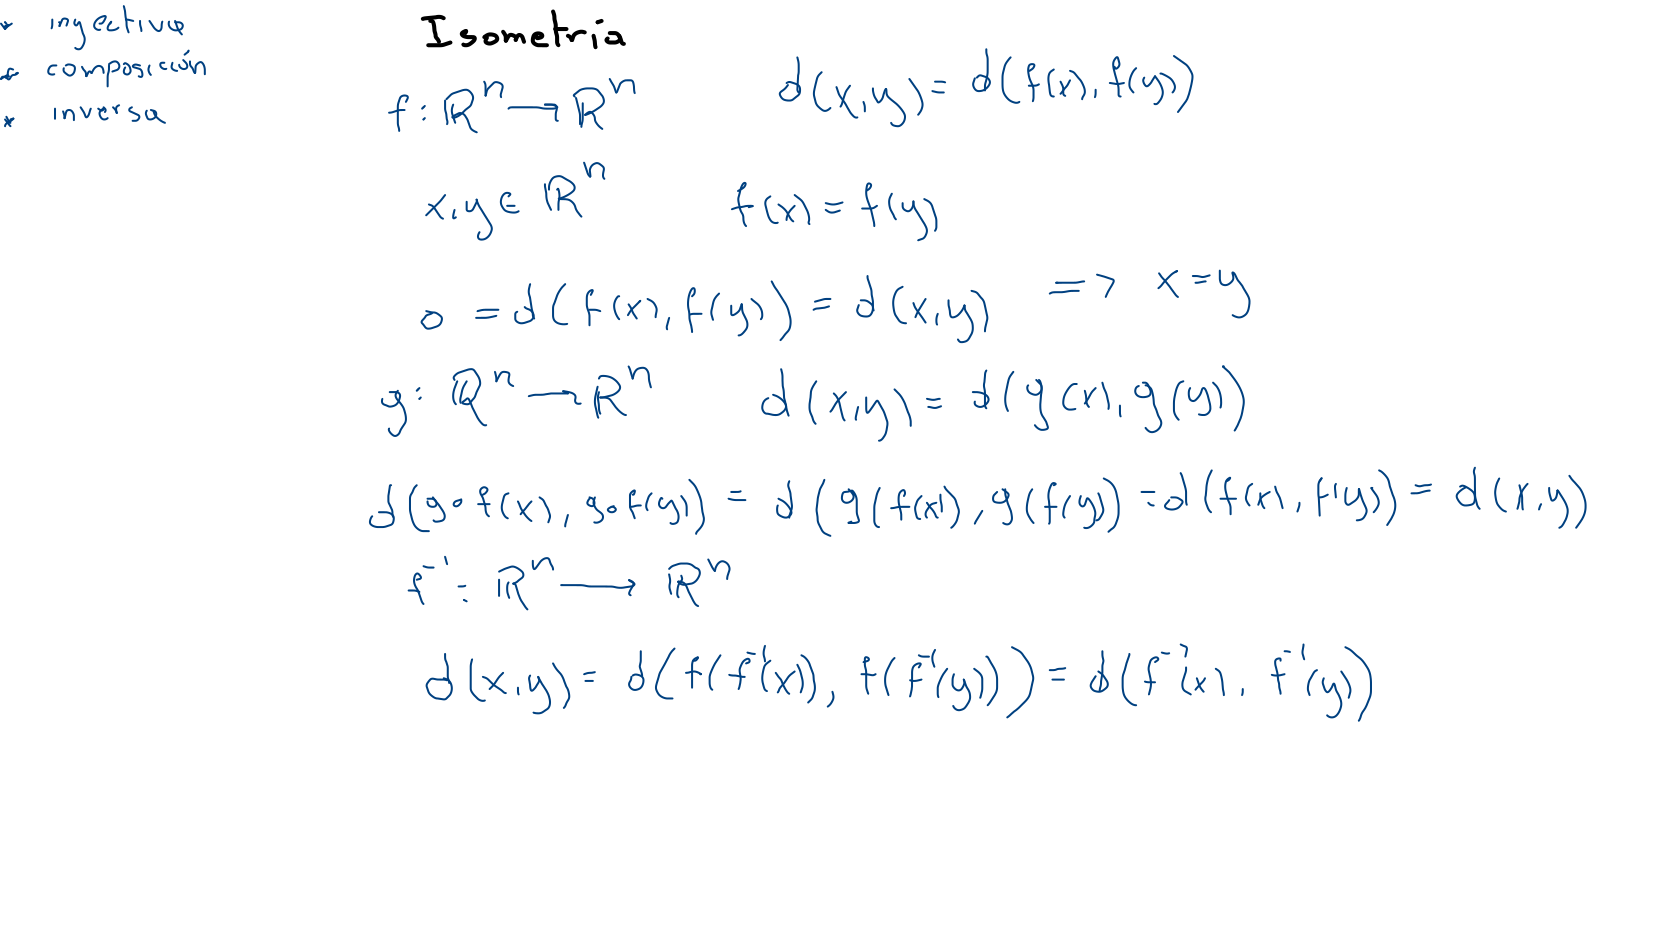 * inyectiva
* composición
* inversa
Isometría
f: ℝⁿ → ℝⁿ d(x,y) = d(f(x), f(y))
x,y ∈ ℝⁿ f(x) = f(y)
0 = d(f(x), f(y)) = d(x,y) => x = y
g: ℝⁿ → ℝⁿ d(x,y) = d(g(x), g(y))
d(g∘f(x), g∘f(y)) = d(g(f(x)), g(f(y))) = d(f(x), f(y)) = d(x,y)
f⁻¹: ℝⁿ → ℝⁿ
d(x,y) = d(f(f⁻¹(x)), f(f⁻¹(y))) = d(f⁻¹(x), f⁻¹(y))